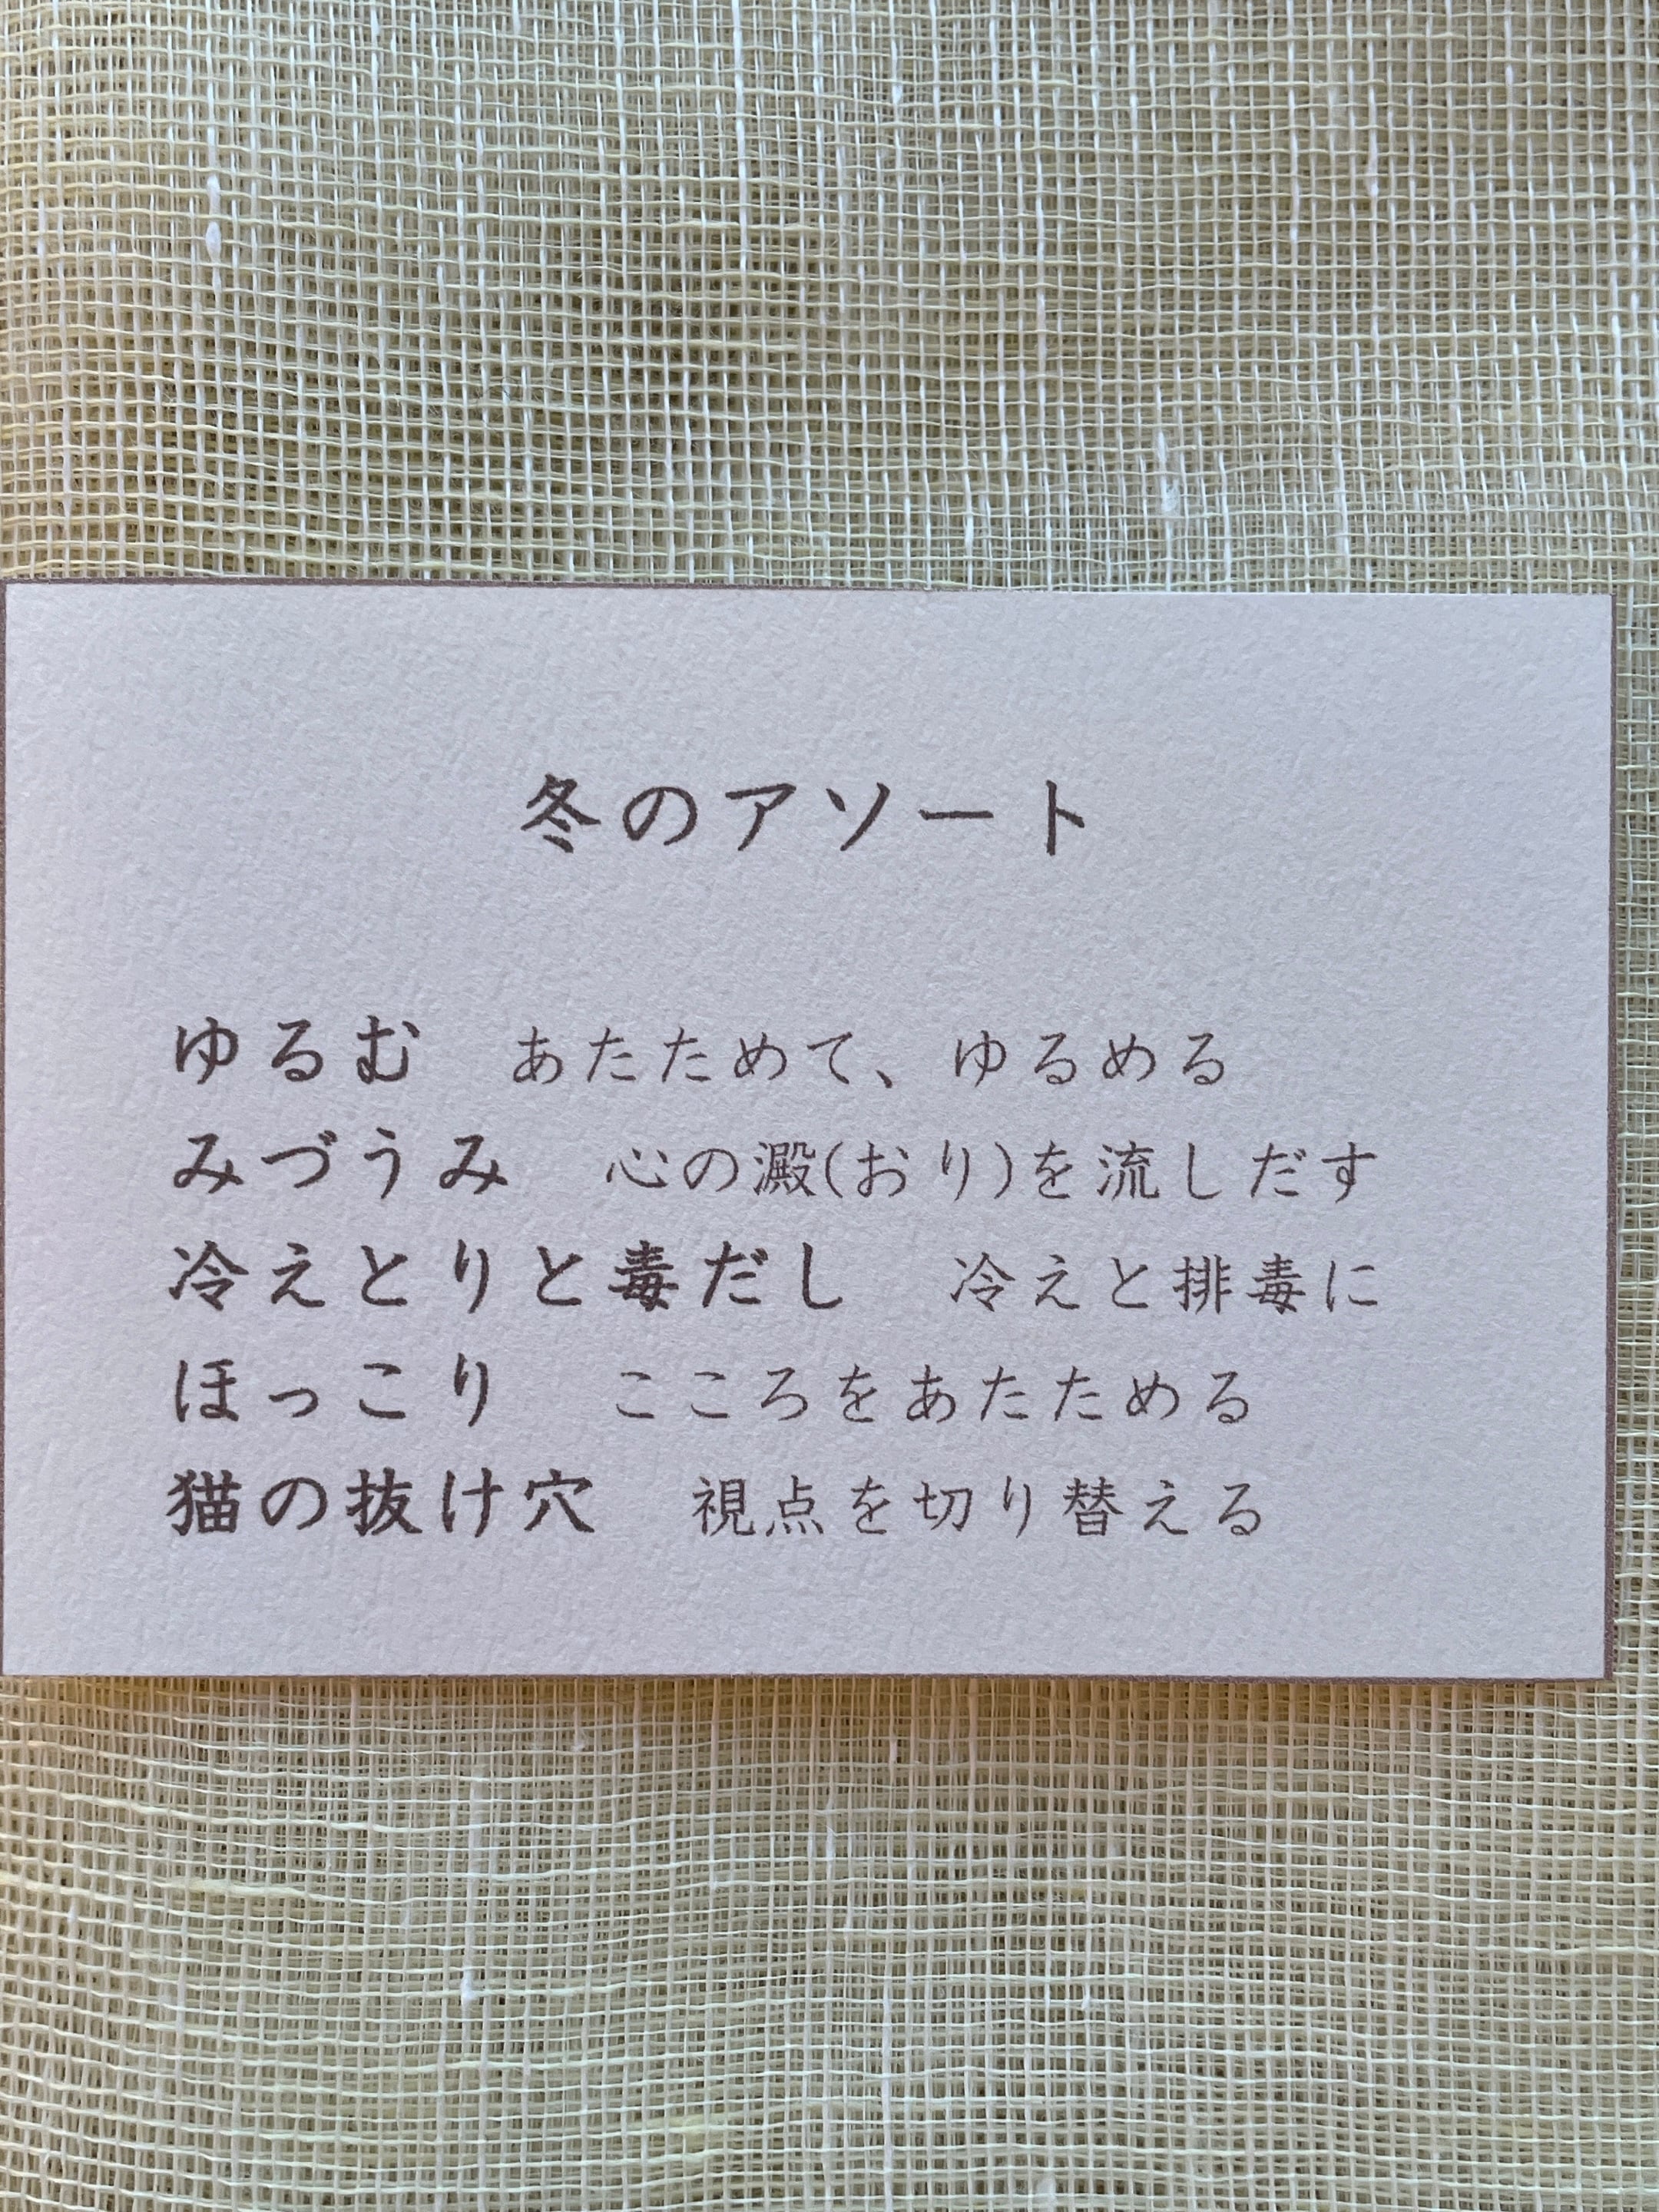 冬のアソート
ゆるむ　あたためて、ゆるめる
みづうみ　心の澱(おり)を流しだす
冷えとりと毒だし　冷えと排毒に
ほっこり　こころをあたためる
猫の抜け穴　視点を切り替える